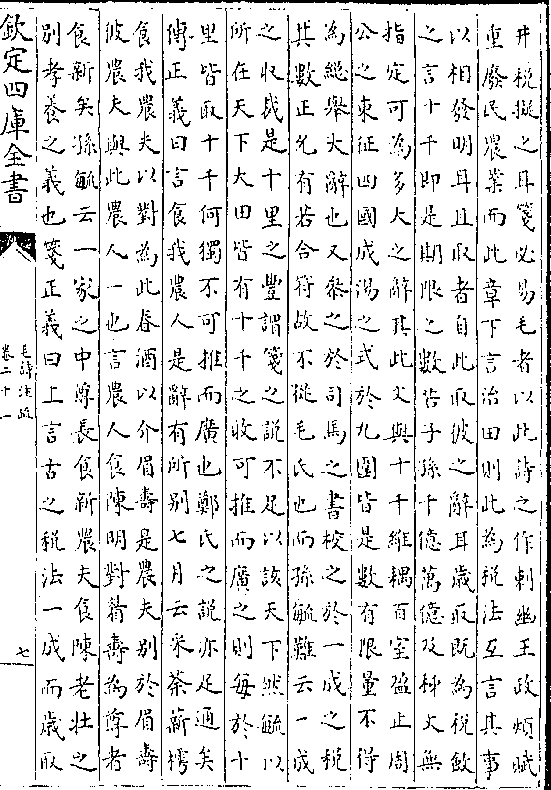 井稅擬之耳箋必易毛者以此詩之作刺幽王政煩賦
重廢民農業而此章下言治田則此為稅法互言其事
以相發明耳且取者自此取彼之辭耳歲取既為稅斂
之言十千即是期限之數告子孫千億萬億及秭文無
指定可為多大之辭耳此文與十千維耦百室盈止周
公之東征四國成湯之式於九圍皆是數有限量不得
為總舉大辭也又叅之於司馬之書校之於一成之稅
其數正允有若合符故不從毛氏也而孫毓難云一成
之收戓是十里之豐謂箋之說不足以該天下然毓以
所在天下大田皆有十千之收可推而廣之則每於十
里皆取十千何獨不可推而廣也鄭氏之說亦足通矣
傳正義曰言食我農人是辭有所別七月云采荼薪樗
食我農夫以對為此春酒以介眉壽是農夫別於眉壽
彼農夫與此農人一也言農人食陳明對耆壽為尊者
食新矣孫毓云一家之中尊長食新農夫食陳老壯之
別孝養之義也箋正義曰上言古之稅法一成而歲取
欽定四庫全書
毛詩注疏
卷二十一
七